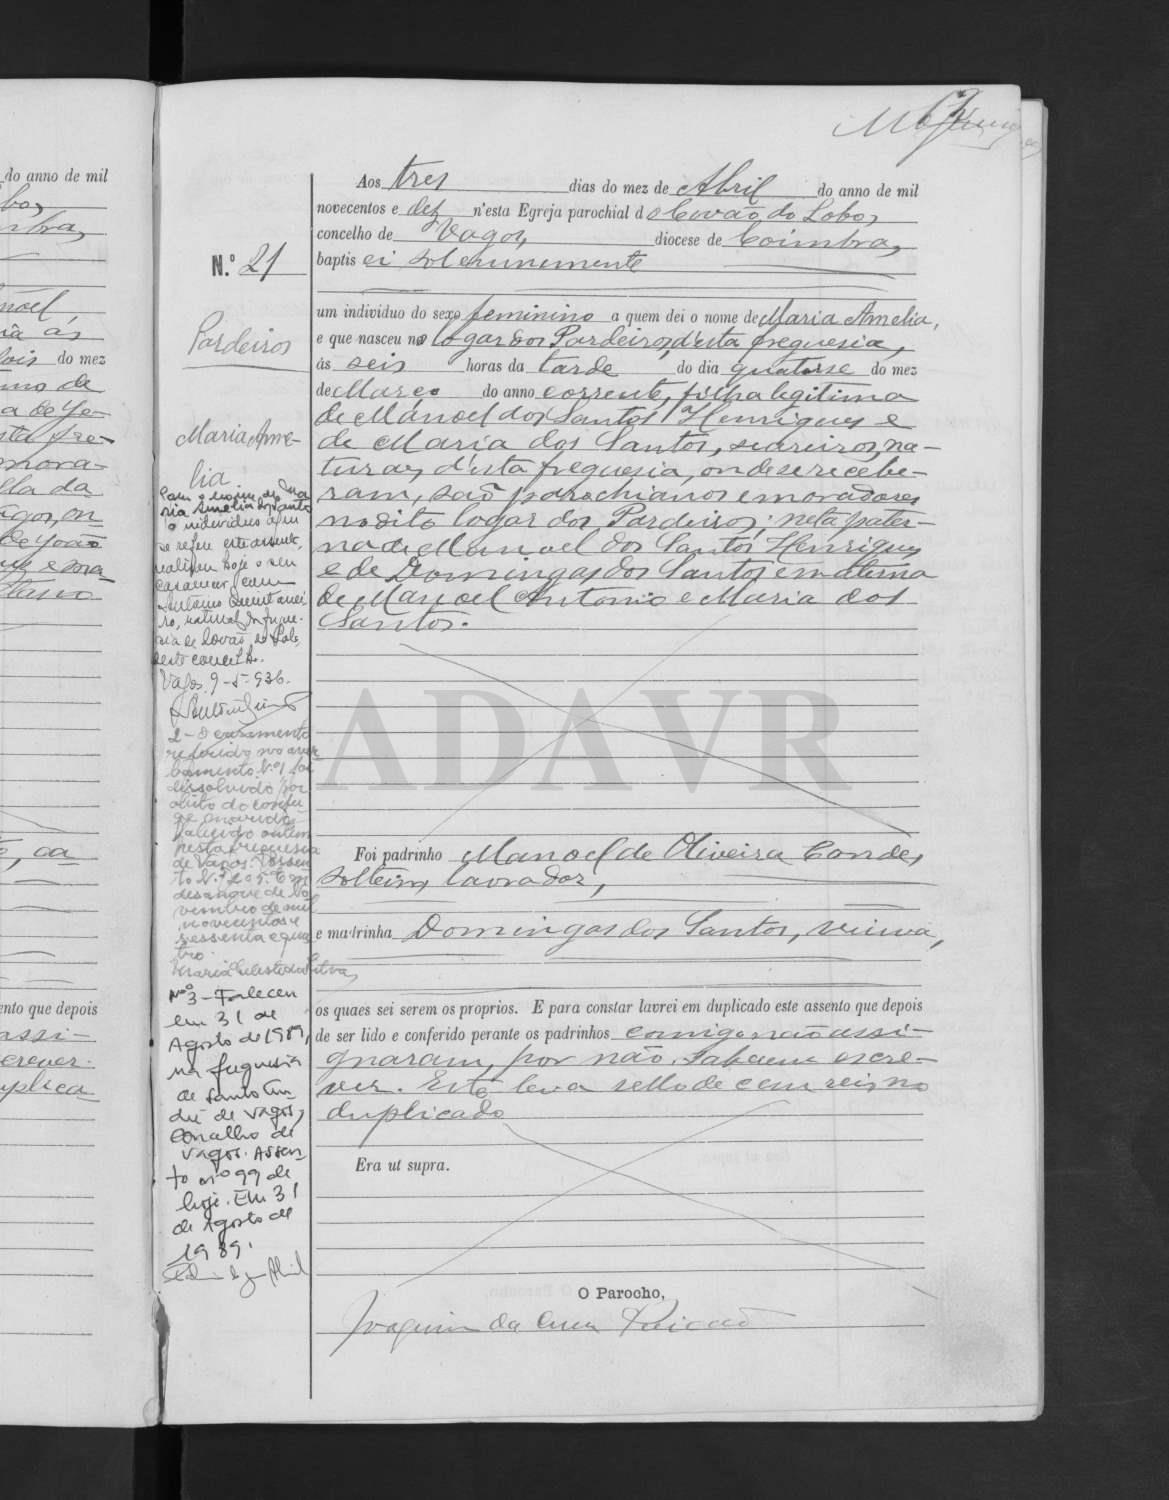 Aos tres dias do mez de Abril do anno de mil
novecentos e dez n'esta Egreja parochial de Covão do Lobo,
concelho de Vagos, diocese de Coimbra,
baptisei solemnemente
um individuo do sexo feminino a quem dei o nome de Maria Amelia,
e que nasceu no logar dos Pardeiros, d'esta freguesia,
ás seis horas da tarde do dia quatorse do mez
de Março do anno corrente, filha legitima
de Manoel dos Santos Henriques e
de Maria dos Santos, seareiros, na-
turaes d'esta freguesia, onde se recebe-
ram, são parochianos e moradores
no dito logar dos Pardeiros; neta pater-
na de Manoel dos Santos Henriques
e de Domingas dos Santos e materna
de Manoel Antonio e Maria dos
Santos.
Foi padrinho Manoel de Oliveira Conde,
solteiro, lavrador,
e madrinha Domingas dos Santos, viuva,
os quaes sei serem os proprios. E para constar lavrei em duplicado este assento que depois
de ser lido e conferido perante os padrinhos comigo não assi-
gnaram, por não saberem escre-
ver. Este leva sello de cem reis no
duplicado
Era ut supra.
O Parocho,
Joaquim da Cruz
N.º 21
Pardeiros
Maria Ame-
lia
Com o nome de Ma
ria Amelia dos Santos
o individuo a q
se refere este assento,
realizou hoje o seu
casamento com
Antonio
ro, natural da fregue-
sia de Covão do Lobo,
deste concelho.
Vagos, 9-5-936.
2- O casamento
referido no aver
bamento N.º 1 foi
dissolvido por
obito do conju-
ge marido,
falecido ontem
nesta freguesia
de Vagos. Assen
to N.º
de No
vembro de mil
novecentos e
sessenta e qua
tro.
Maria Celeste da Silva
Nº 3 - Faleceu
em 31 de
Agosto de 1989,
na freguesia
de Santo An
dré de Vagos,
concelho de
Vagos. Assen
to nº 99 de
hoje. Em 31
de Agosto de
1989.
do anno de mil
do mez
ento que depois
ADAVR